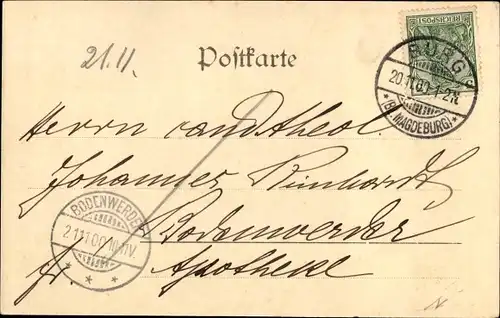 21.11.
Postkarte
REICHSPOST
BURG
20.11.00.1-2N.
*(B. MAGDEBURG)*
Herrn cand theol.
Johannes Reinhardt
BODENWERDER
21.11.00
Bodenwerder
Apotheke